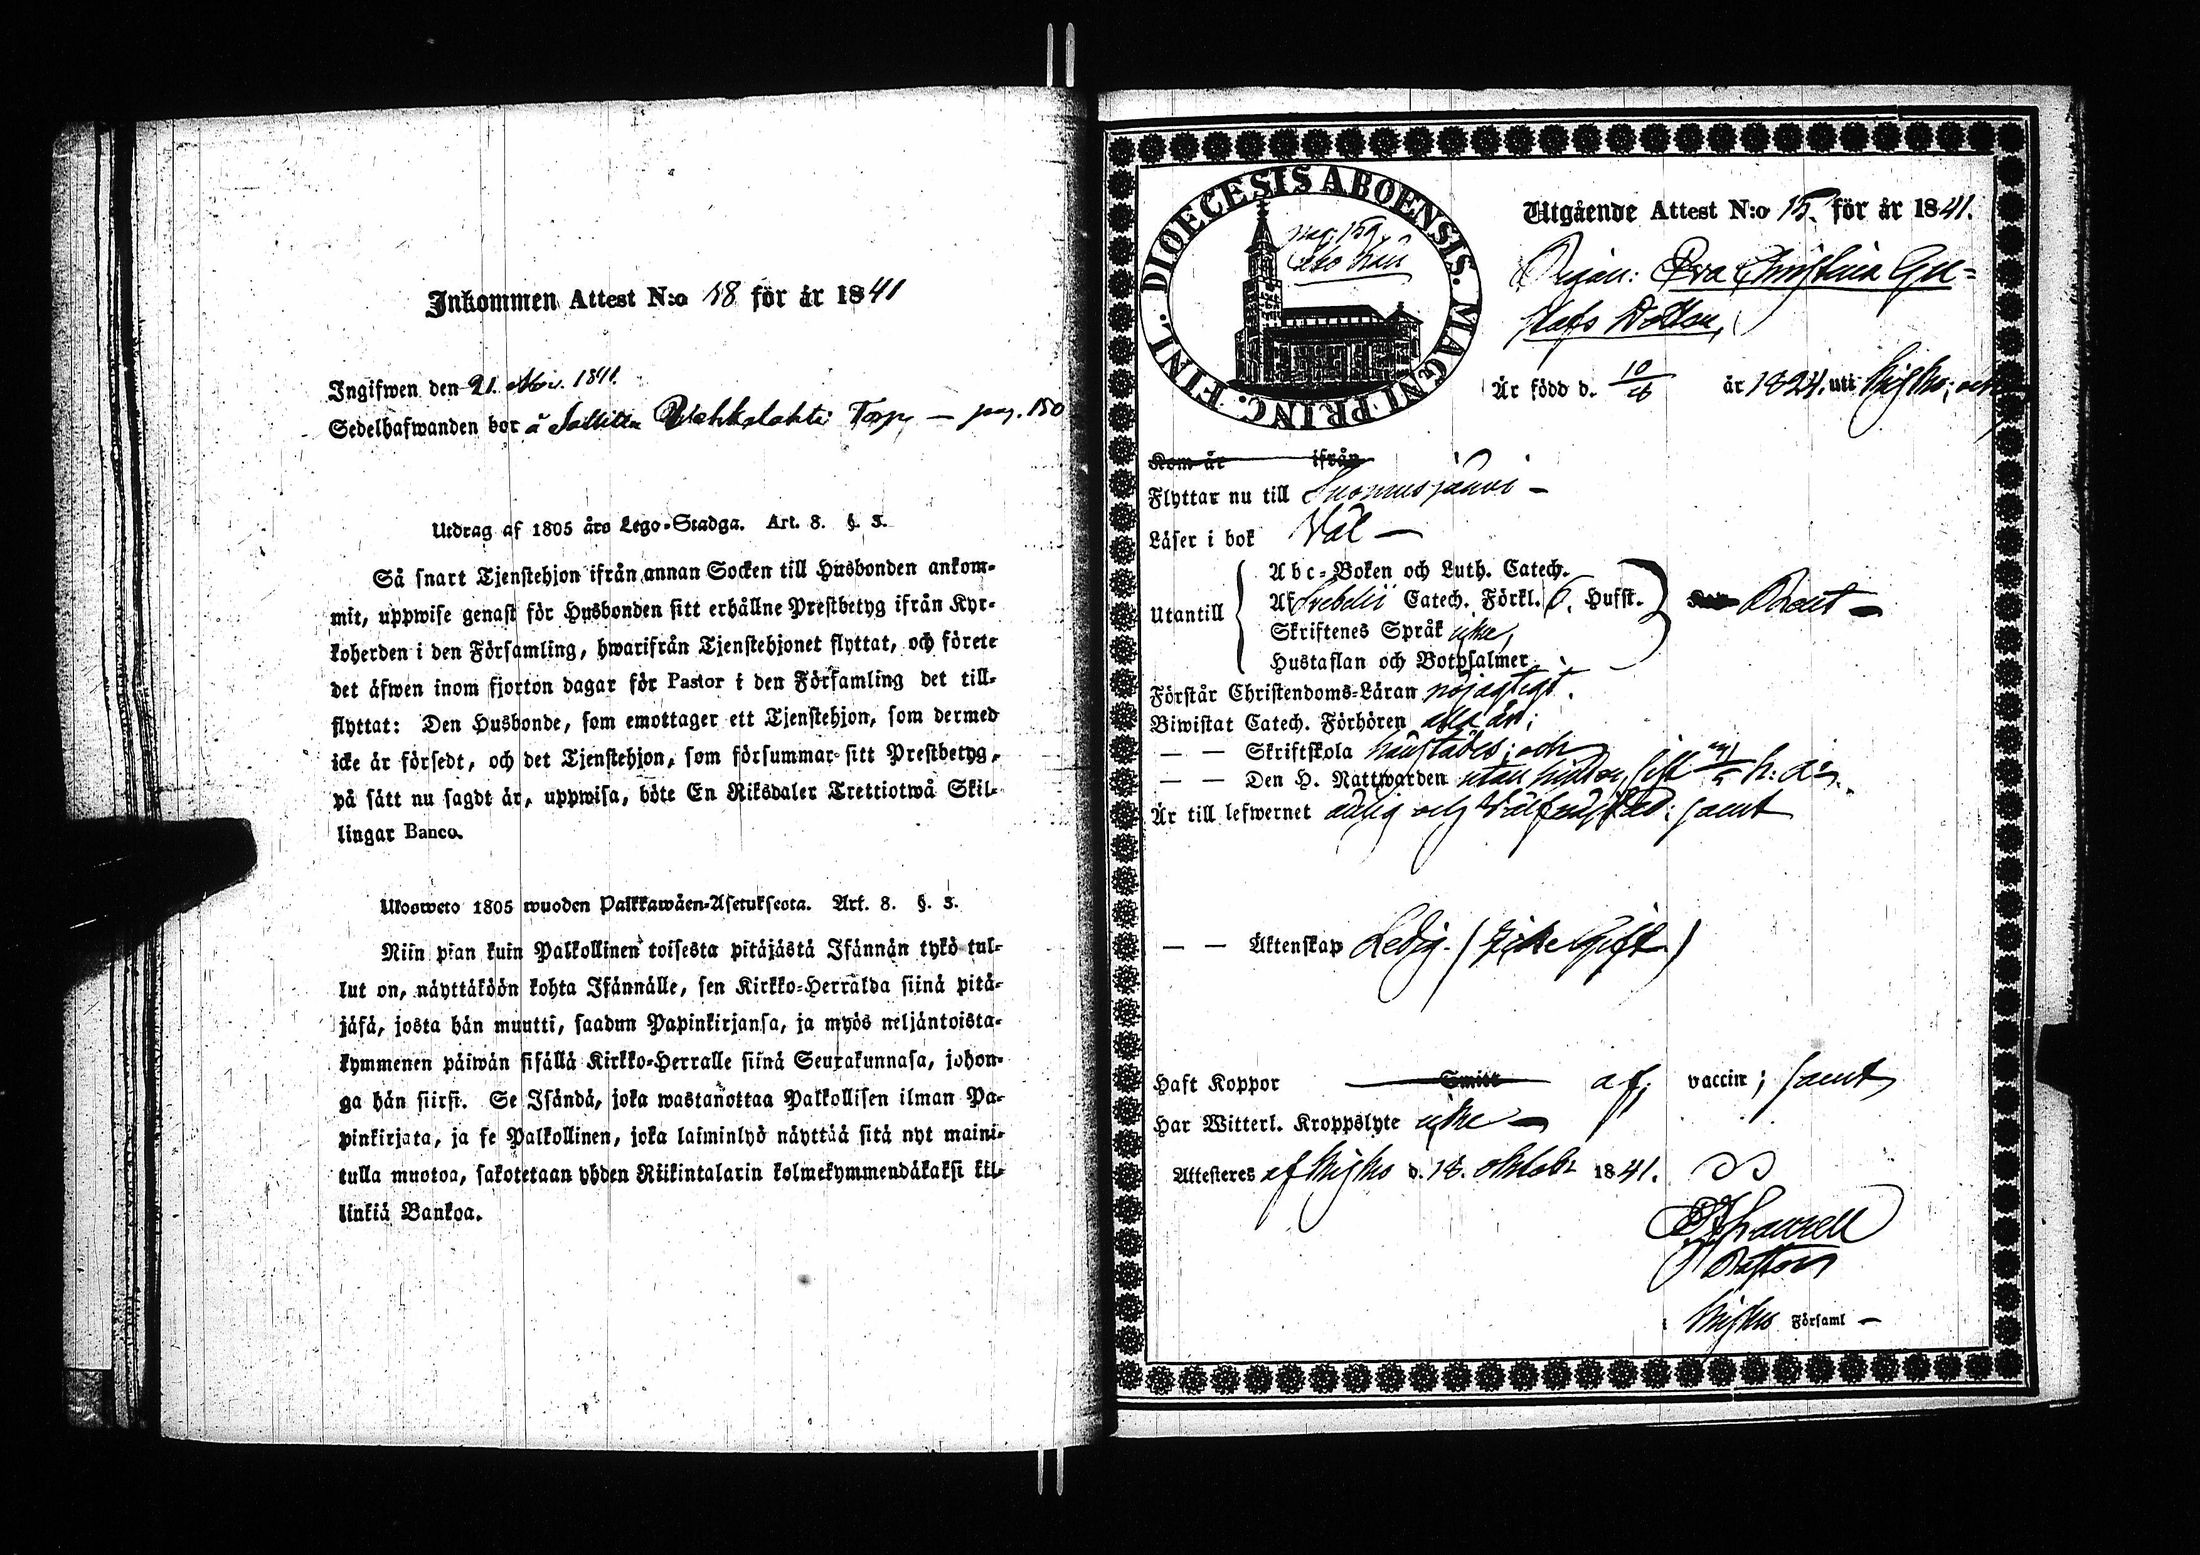 Inkommen Attest N:o 18 för år 1841
Ingifwen den 21. Nov. 1841.
Sedelhafwanden bor å Torp — pag. 150
Utdrag af 1805 års Lego-Stadga. Art. 8. §. 3.
Så snart Tjenstehjon ifrån annan Socken till Husbonden ankom-
mit, uppwise genast för Husbonden sitt erhållne Prestbetyg ifrån Kyr-
koherden i den Församling, hwarifrån Tjenstehjonet flyttat, och förete
det äfwen inom fjorton dagar för Pastor i den Församling det till-
flyttat: Den Husbonde, som emottager ett Tjenstehjon, som dermed
icke är försedt, och det Tjenstehjon, som försummar sitt Prestbetyg,
på sätt nu sagdt är, uppwisa, böte En Riksdaler Trettiotwå Skil-
lingar Banco.
Ulosweto 1805 wuoden Palkkawäen-Asetuksesta. Art. 8. §. 3.
Niin pian kuin Palkollinen toisesta pitäjästä Isännän tykö tul-
lut on, näyttäköön kohta Isännälle, sen Kirkko-Herralda siinä pitä-
jäsä, josta hän muutti, saadun Papinkirjansa, ja myös neljäntoista-
kymmenen päiwän sisällä Kirkko-Herralle siinä Seurakunnasa, johon-
ga hän siirsi. Se Isändä, joka wastanottaa Palkollisen ilman Pa-
pinkirjata, ja se Palkollinen, joka laiminlyö näyttää sitä nyt maini-
tulla muotoa, sakotetaan yhden Riikintalarin kolmekymmendäkaksi kil-
linkiä Bankoa.
DIOECESIS ABOENSIS. MAGNI PRINC. FINL.
pag. 159
Utgående Attest N:o 15. för år 1841.
Pigan: Eva Christina Gu-
stafs Dotter,
Är född d. 10/ år 1824. uti Kisko; och
Kom år ifrån
Flyttar nu till Suomusjärvi —
Läser i bok Väl —
Abc-Boken och Luth. Catech.
Utantill Af Svebelii Catech. Förkl. 6. Hufst. —
Skriftenes Språk icke,
Hustaflan och Botpsalmer
Förstår Christendoms-Läran nöjagtigt.
Biwistat Catech. Förhören alla år;
— — Skriftskola och
— — Den H. Nattwarden utan sist h. a:
Är till lefwernet ärlig och Välfrejdad: samt
— — Äktenskap Ledig. (icke Gift.)
Haft Koppor Smitt af vaccin; samt
Har Witterl. Kroppslyte icke —
Attesteres af Kisko d. 18. oktobr 1841.
Pastor
i Kisko Församl —